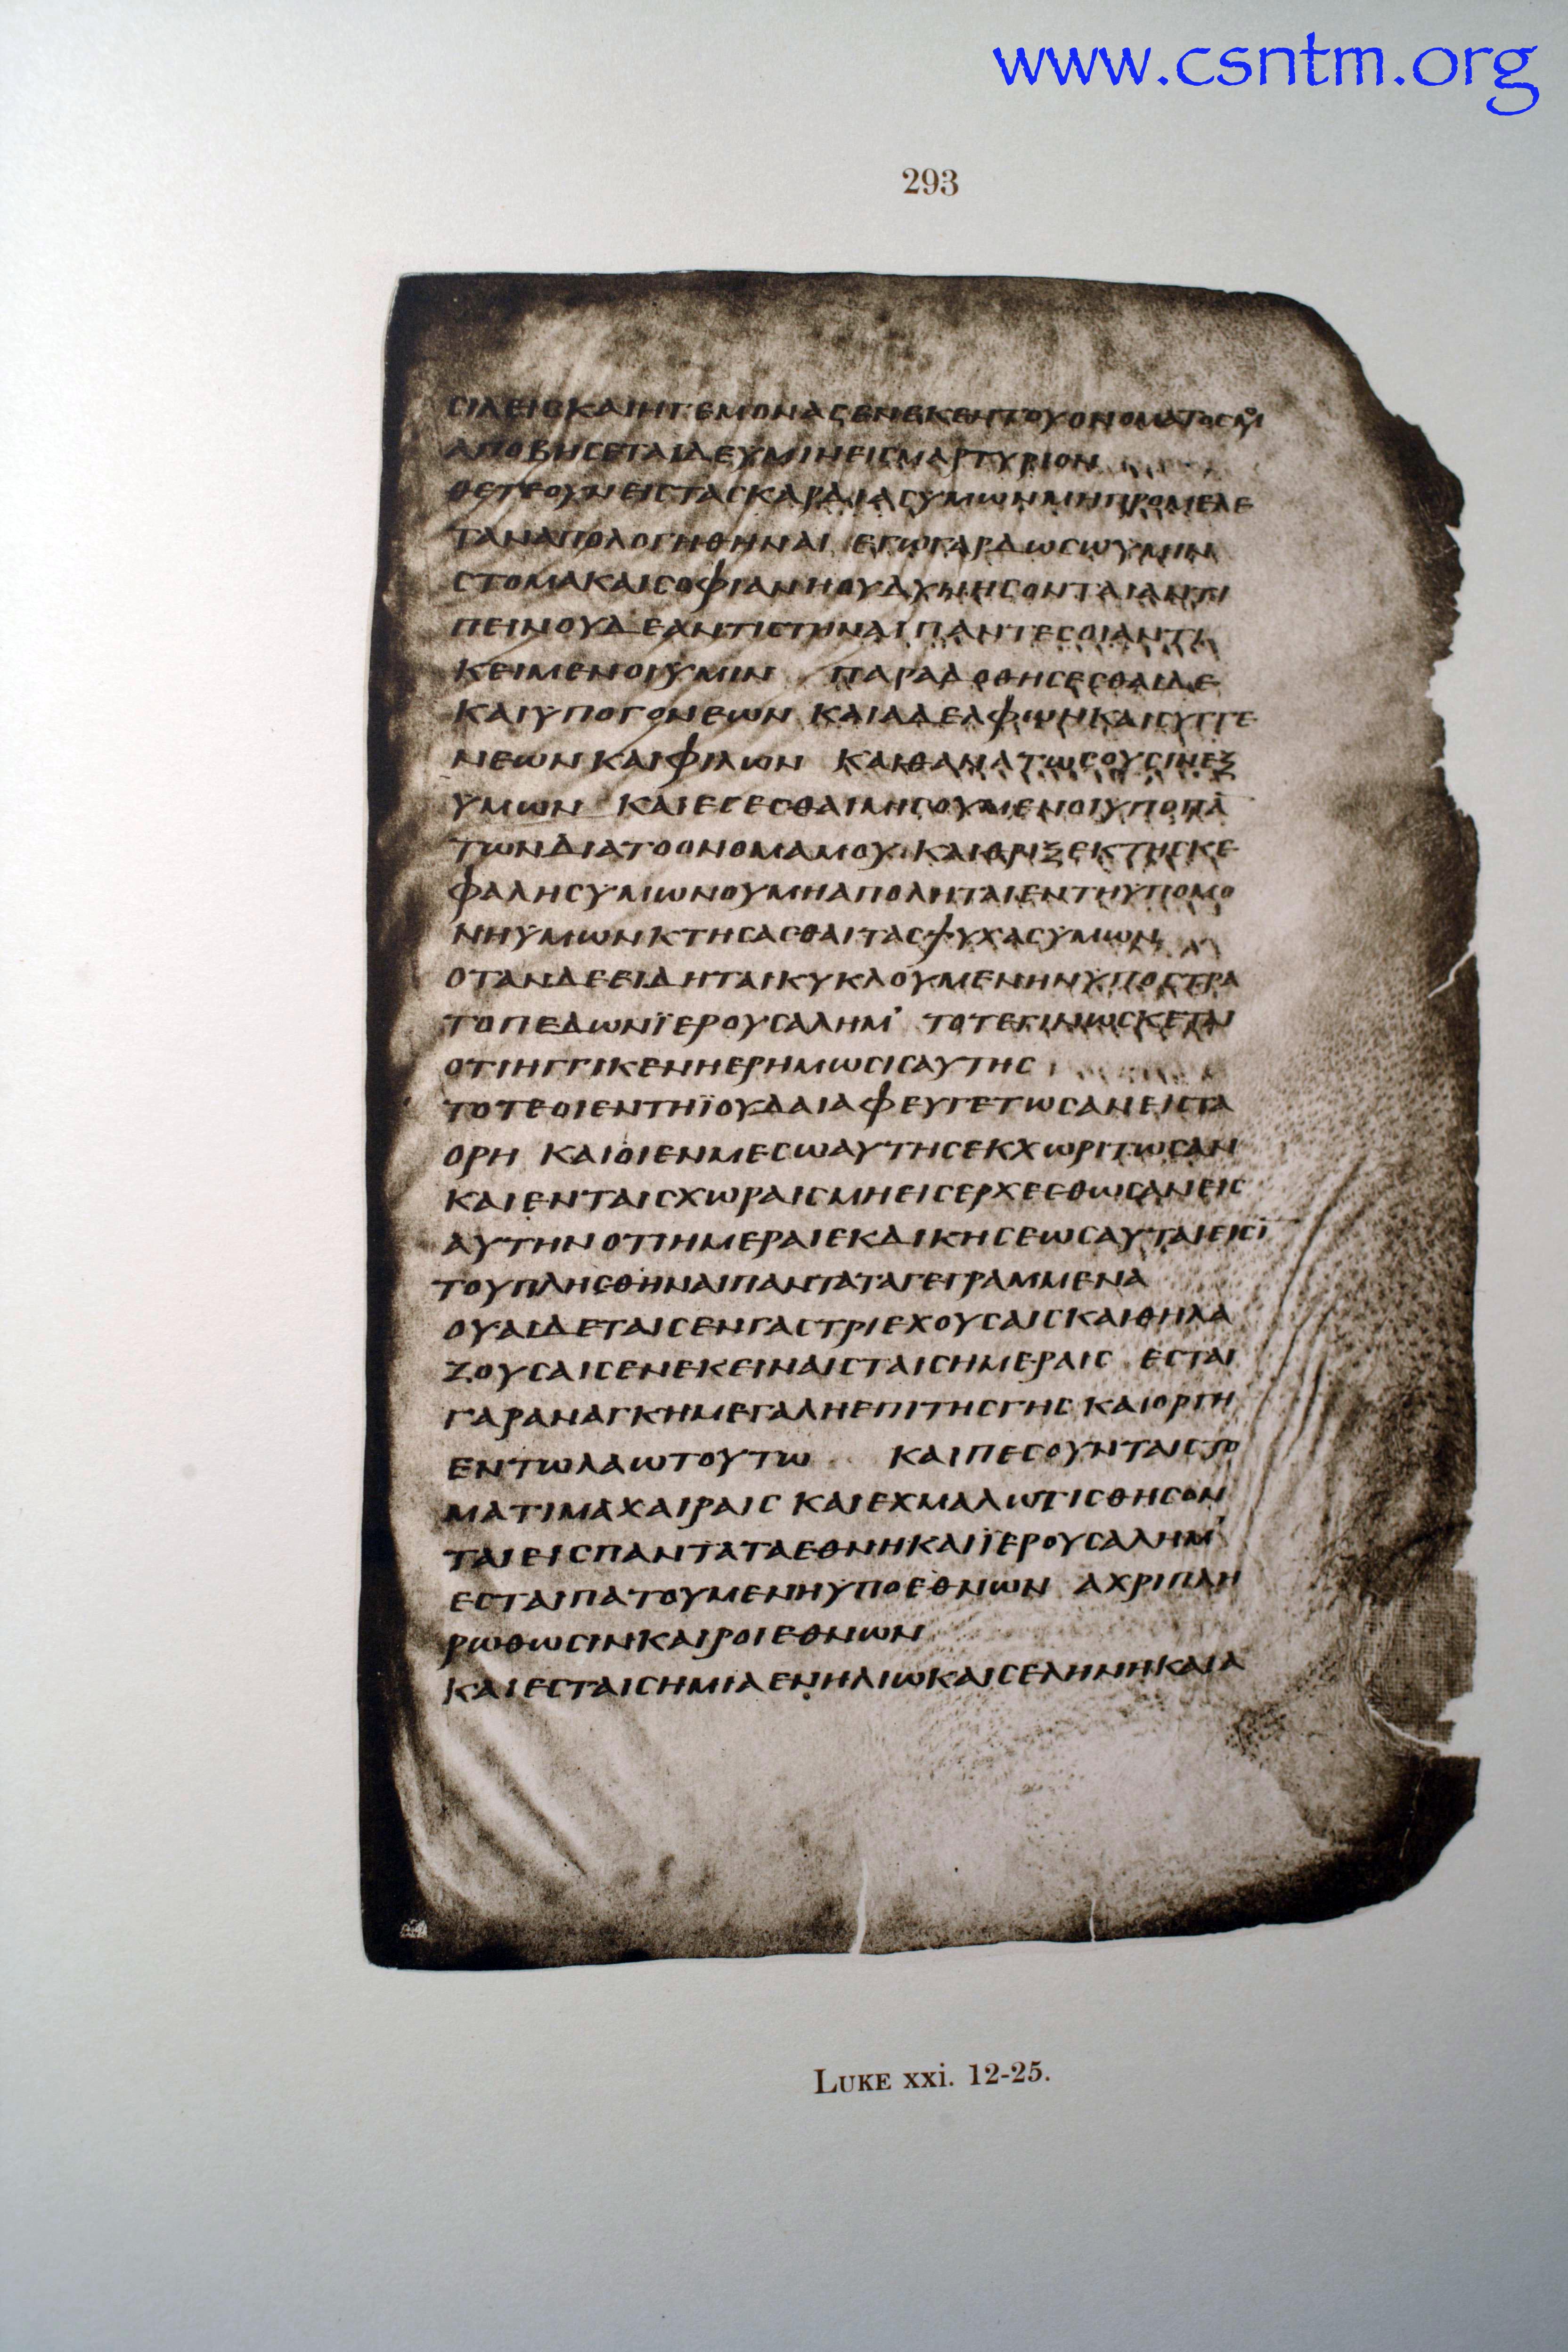 www.csntm.org
293
ϹΙΛΕΙϹΚΑΙΗΓΕΜΟΝΑϹΕΝΕΚΕΝΤΟΥΟΝΟΜΑΤΟϹΜΟΥ
ΑΠΟΒΗϹΕΤΑΙΔΕΥΜΙΝΕΙϹΜΑΡΤΥΡΙΟΝ
ΘΕΤΕΟΥΝΕΙϹΤΑϹΚΑΡΔΙΑϹΥΜΩΝΜΗΠΡΟΜΕΛΕ
ΤΑΝΑΠΟΛΟΓΗΘΗΝΑΙ ΕΓΩΓΑΡΔΩϹΩΥΜΙΝ
ϹΤΟΜΑΚΑΙϹΟΦΙΑΝΗΟΥΔΥΝΗϹΟΝΤΑΙΑΝΤΙ
ΠΕΙΝΟΥΔΕΑΝΤΙϹΤΗΝΑΙΠΑΝΤΕϹΟΙΑΝΤΙ
ΚΕΙΜΕΝΟΙΥΜΙΝ ΠΑΡΑΔΟΘΗϹΕϹΘΑΙΔΕ
ΚΑΙΥΠΟΓΟΝΕΩΝ ΚΑΙΑΔΕΛΦΩΝΚΑΙϹΥΓΓΕ
ΝΕΩΝΚΑΙΦΙΛΩΝ ΚΑΙΘΑΝΑΤΩϹΟΥϹΙΝΕΞ
ΥΜΩΝ ΚΑΙΕϹΕϹΘΑΙΜΗϹΟΥΜΕΝΟΙΥΠΟΠΑ̅
ΤΩΝΔΙΑΤΟΟΝΟΜΑΜΟΥ ΚΑΙΘΡΙΞΕΚΤΗϹΚΕ
ΦΑΛΗϹΥΜΩΝΟΥΜΗΑΠΟΛΗΤΑΙΕΝΤΗΥΠΟΜΟ
ΝΗΥΜΩΝΚΤΗϹΑϹΘΑΙΤΑϹΨΥΧΑϹΥΜΩΝ
ΟΤΑΝΔΕΕΙΔΗΤΑΙΚΥΚΛΟΥΜΕΝΗΝΥΠΟϹΤΡΑ
ΤΟΠΕΔΩΝΪΕΡΟΥϹΑΛΗΜ' ΤΟΤΕΓΙΝΩϹΚΕΤΑΙ
ΟΤΙΗΓΓΙΚΕΝΗΕΡΗΜΩϹΙϹΑΥΤΗϹ
ΤΟΤΕΟΙΕΝΤΗΪΟΥΔΑΙΑΦΕΥΓΕΤΩϹΑΝΕΙϹΤΑ
ΟΡΗ ΚΑΙΟΙΕΝΜΕϹΩΑΥΤΗϹΕΚΧΩΡΙΤΩϹΑΝ
ΚΑΙΕΝΤΑΙϹΧΩΡΑΙϹΜΗΕΙϹΕΡΧΕϹΘΩϹΑΝΕΙϹ
ΑΥΤΗΝΟΤΙΗΜΕΡΑΙΕΚΔΙΚΗϹΕΩϹΑΥΤΑΙΕΙϹΙ̅
ΤΟΥΠΛΗϹΘΗΝΑΙΠΑΝΤΑΤΑΓΕΓΡΑΜΜΕΝΑ
ΟΥΑΙΔΕΤΑΙϹΕΝΓΑϹΤΡΙΕΧΟΥϹΑΙϹΚΑΙΘΗΛΑ
ΖΟΥϹΑΙϹΕΝΕΚΕΙΝΑΙϹΤΑΙϹΗΜΕΡΑΙϹ ΕϹΤΑΙ
ΓΑΡΑΝΑΓΚΗΜΕΓΑΛΗΕΠΙΤΗϹΓΗϹ ΚΑΙΟΡΓΗ
ΕΝΤΩΛΑΩΤΟΥΤΩ ΚΑΙΠΕϹΟΥΝΤΑΙϹΤΟ
ΜΑΤΙΜΑΧΑΙΡΑΙϹ ΚΑΙΕΧΜΑΛΩΤΙϹΘΗϹΟΝ
ΤΑΙΕΙϹΠΑΝΤΑΤΑΕΘΝΗΚΑΙΪΕΡΟΥϹΑΛΗΜ'
ΕϹΤΑΙΠΑΤΟΥΜΕΝΗΥΠΟΕΘΝΩΝ ΑΧΡΙΠΛΗ
ΡΩΘΩϹΙΝΚΑΙΡΟΙΕΘΝΩΝ
ΚΑΙΕϹΤΑΙϹΗΜΙΑΕΝΗΛΙΩΚΑΙϹΕΛΗΝΗΚΑΙΑ
LUKE xxi. 12-25.